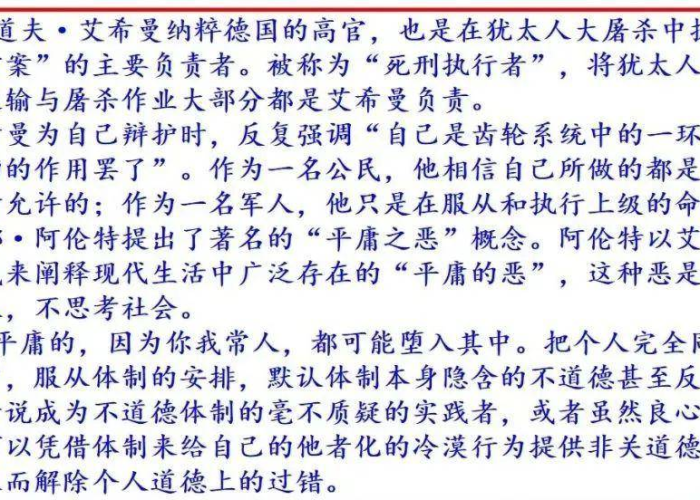 道夫·艾希曼纳粹德国的高官，也是在犹太人大屠杀中
案”的主要负责者。被称为“死刑执行者”，将犹太人
输与屠杀作业大部分都是艾希曼负责。
曼为自己辩护时，反复强调“自己是齿轮系统中的一环
的作用罢了”。作为一名公民，他相信自己所做的都是
允许的；作为一名军人，他只是在服从和执行上级的命
·阿伦特提出了著名的“平庸之恶”概念。阿伦特以艾
来阐释现代生活中广泛存在的“平庸的恶”，这种恶是
，不思考社会。
平庸的，因为你我常人，都可能堕入其中。把个人完全
，服从体制的安排，默认体制本身隐含的不道德甚至反
说成为不道德体制的毫不质疑的实践者，或者虽然良心
以凭借体制来给自己的他者化的冷漠行为提供非关道德
而解除个人道德上的过错。